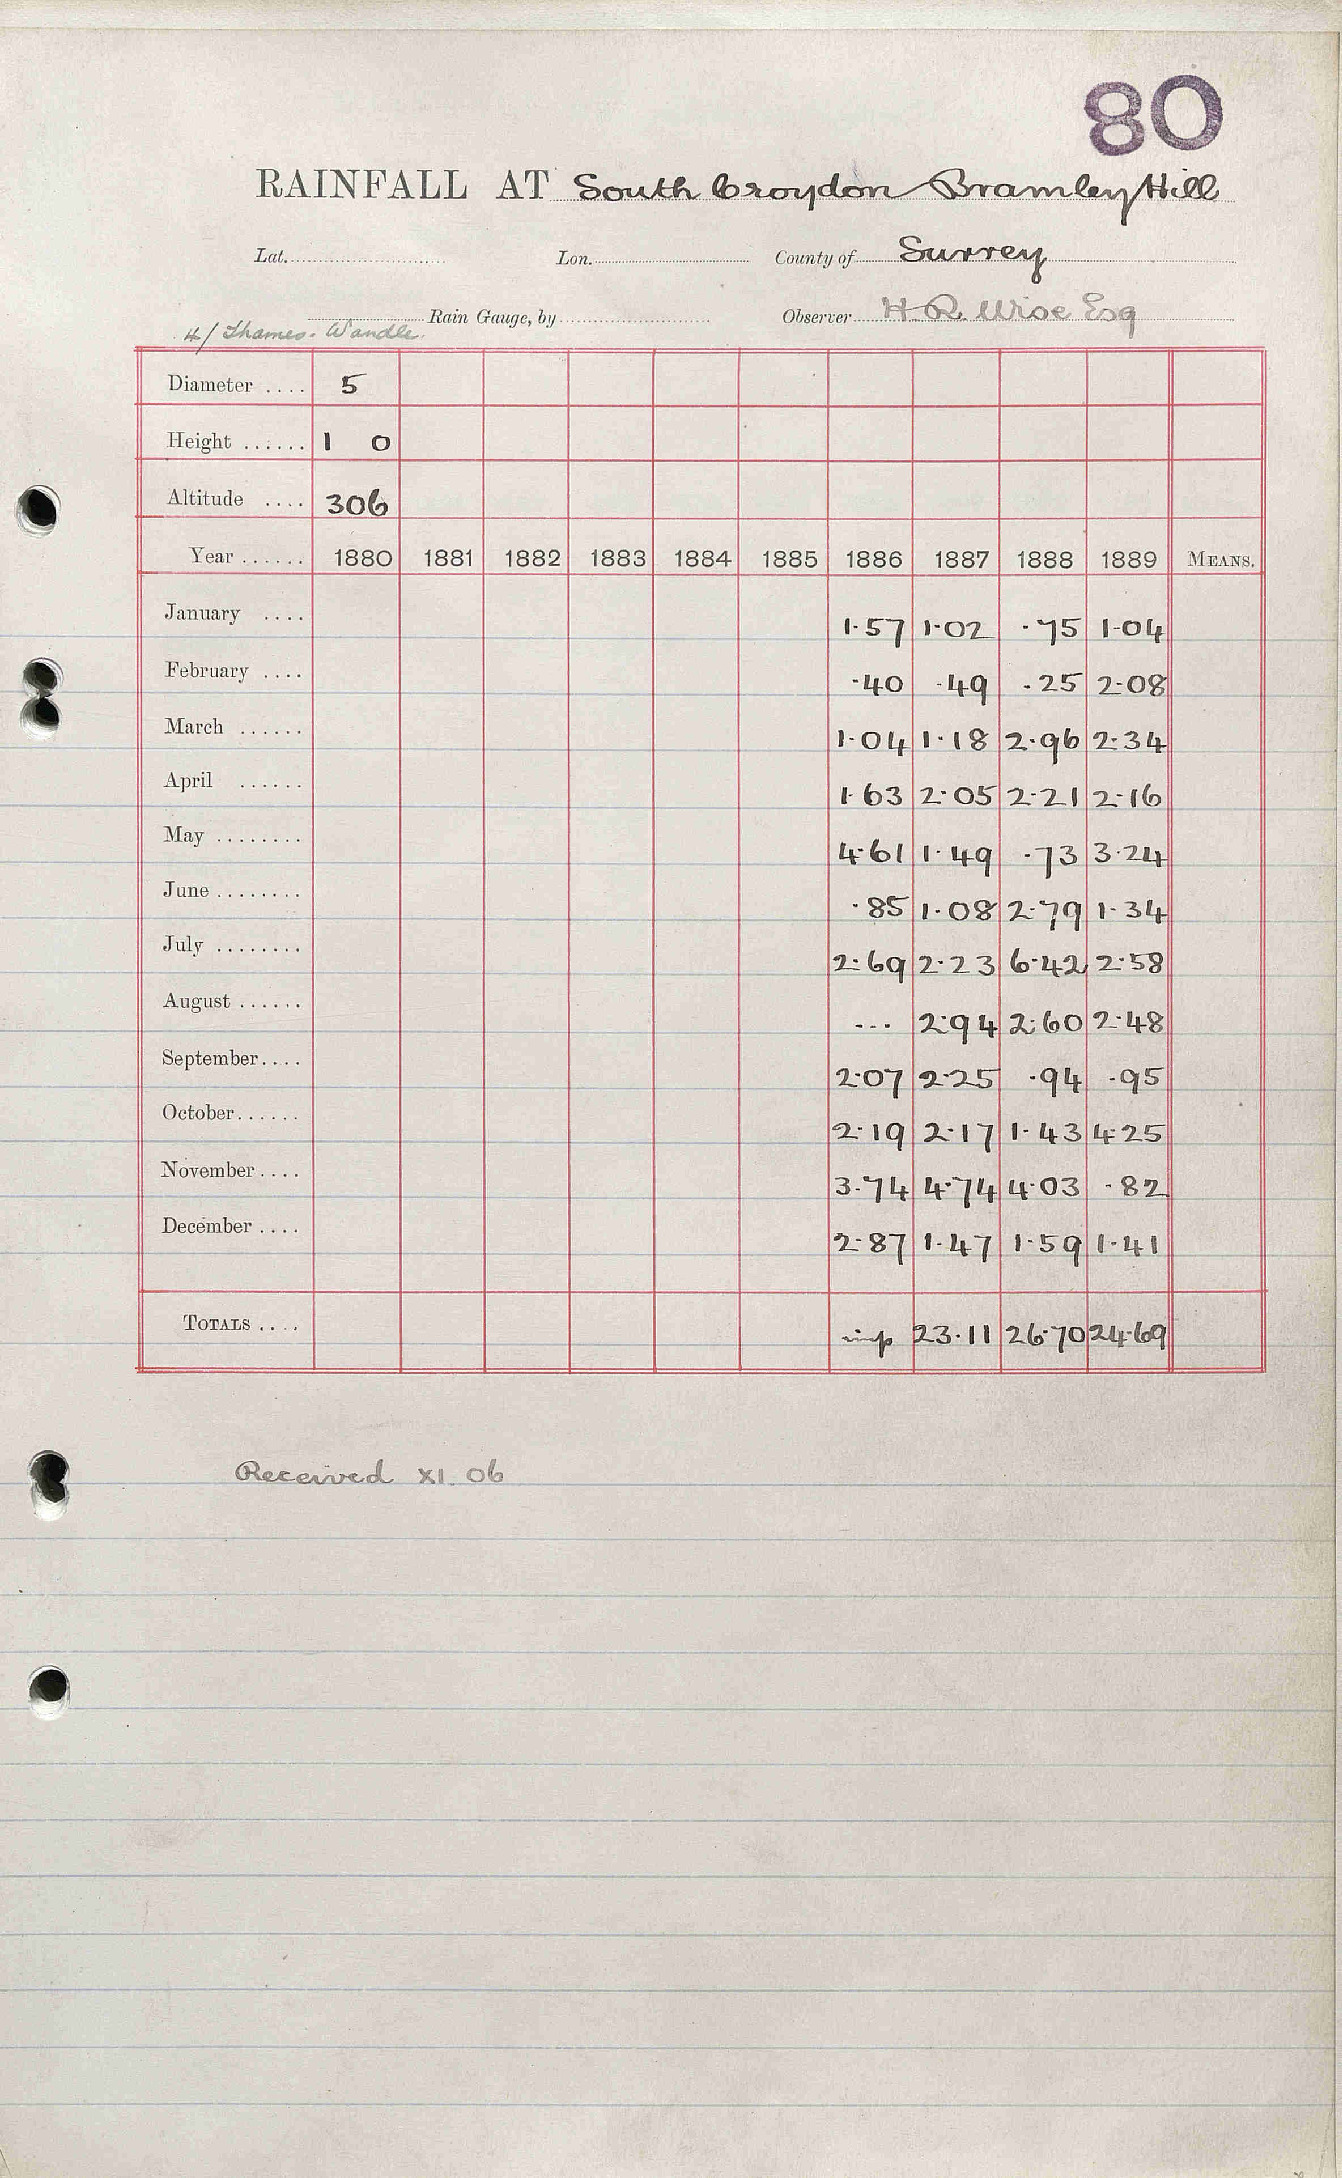 80
RAINFALL AT South Croydon Bramley Hill
Lat. Lon. County of Surrey
Rain Gauge, by Observer H. R. Wise Esq
4/ Thames - Wandle
Diameter .... 5
Height ...... 1 0
Altitude .... 306
Year ...... 1880 1881 1882 1883 1884 1885 1886 1887 1888 1889 MEANS.
January .... 1.57 1.02 .75 1.04
February .... .40 .49 .25 2.08
March ...... 1.04 1.18 2.96 2.34
April ...... 1.63 2.05 2.21 2.16
May ........ 4.61 1.49 .73 3.24
June ........ .85 1.08 2.79 1.34
July ........ 2.69 2.23 6.42 2.58
August ...... ... 2.94 2.60 2.48
September .... 2.07 2.25 .94 .95
October ...... 2.19 2.17 1.43 4.25
November .... 3.74 4.74 4.03 .82
December .... 2.87 1.47 1.59 1.41
TOTALS .... imp 23.11 26.70 24.69
Received XI. 06